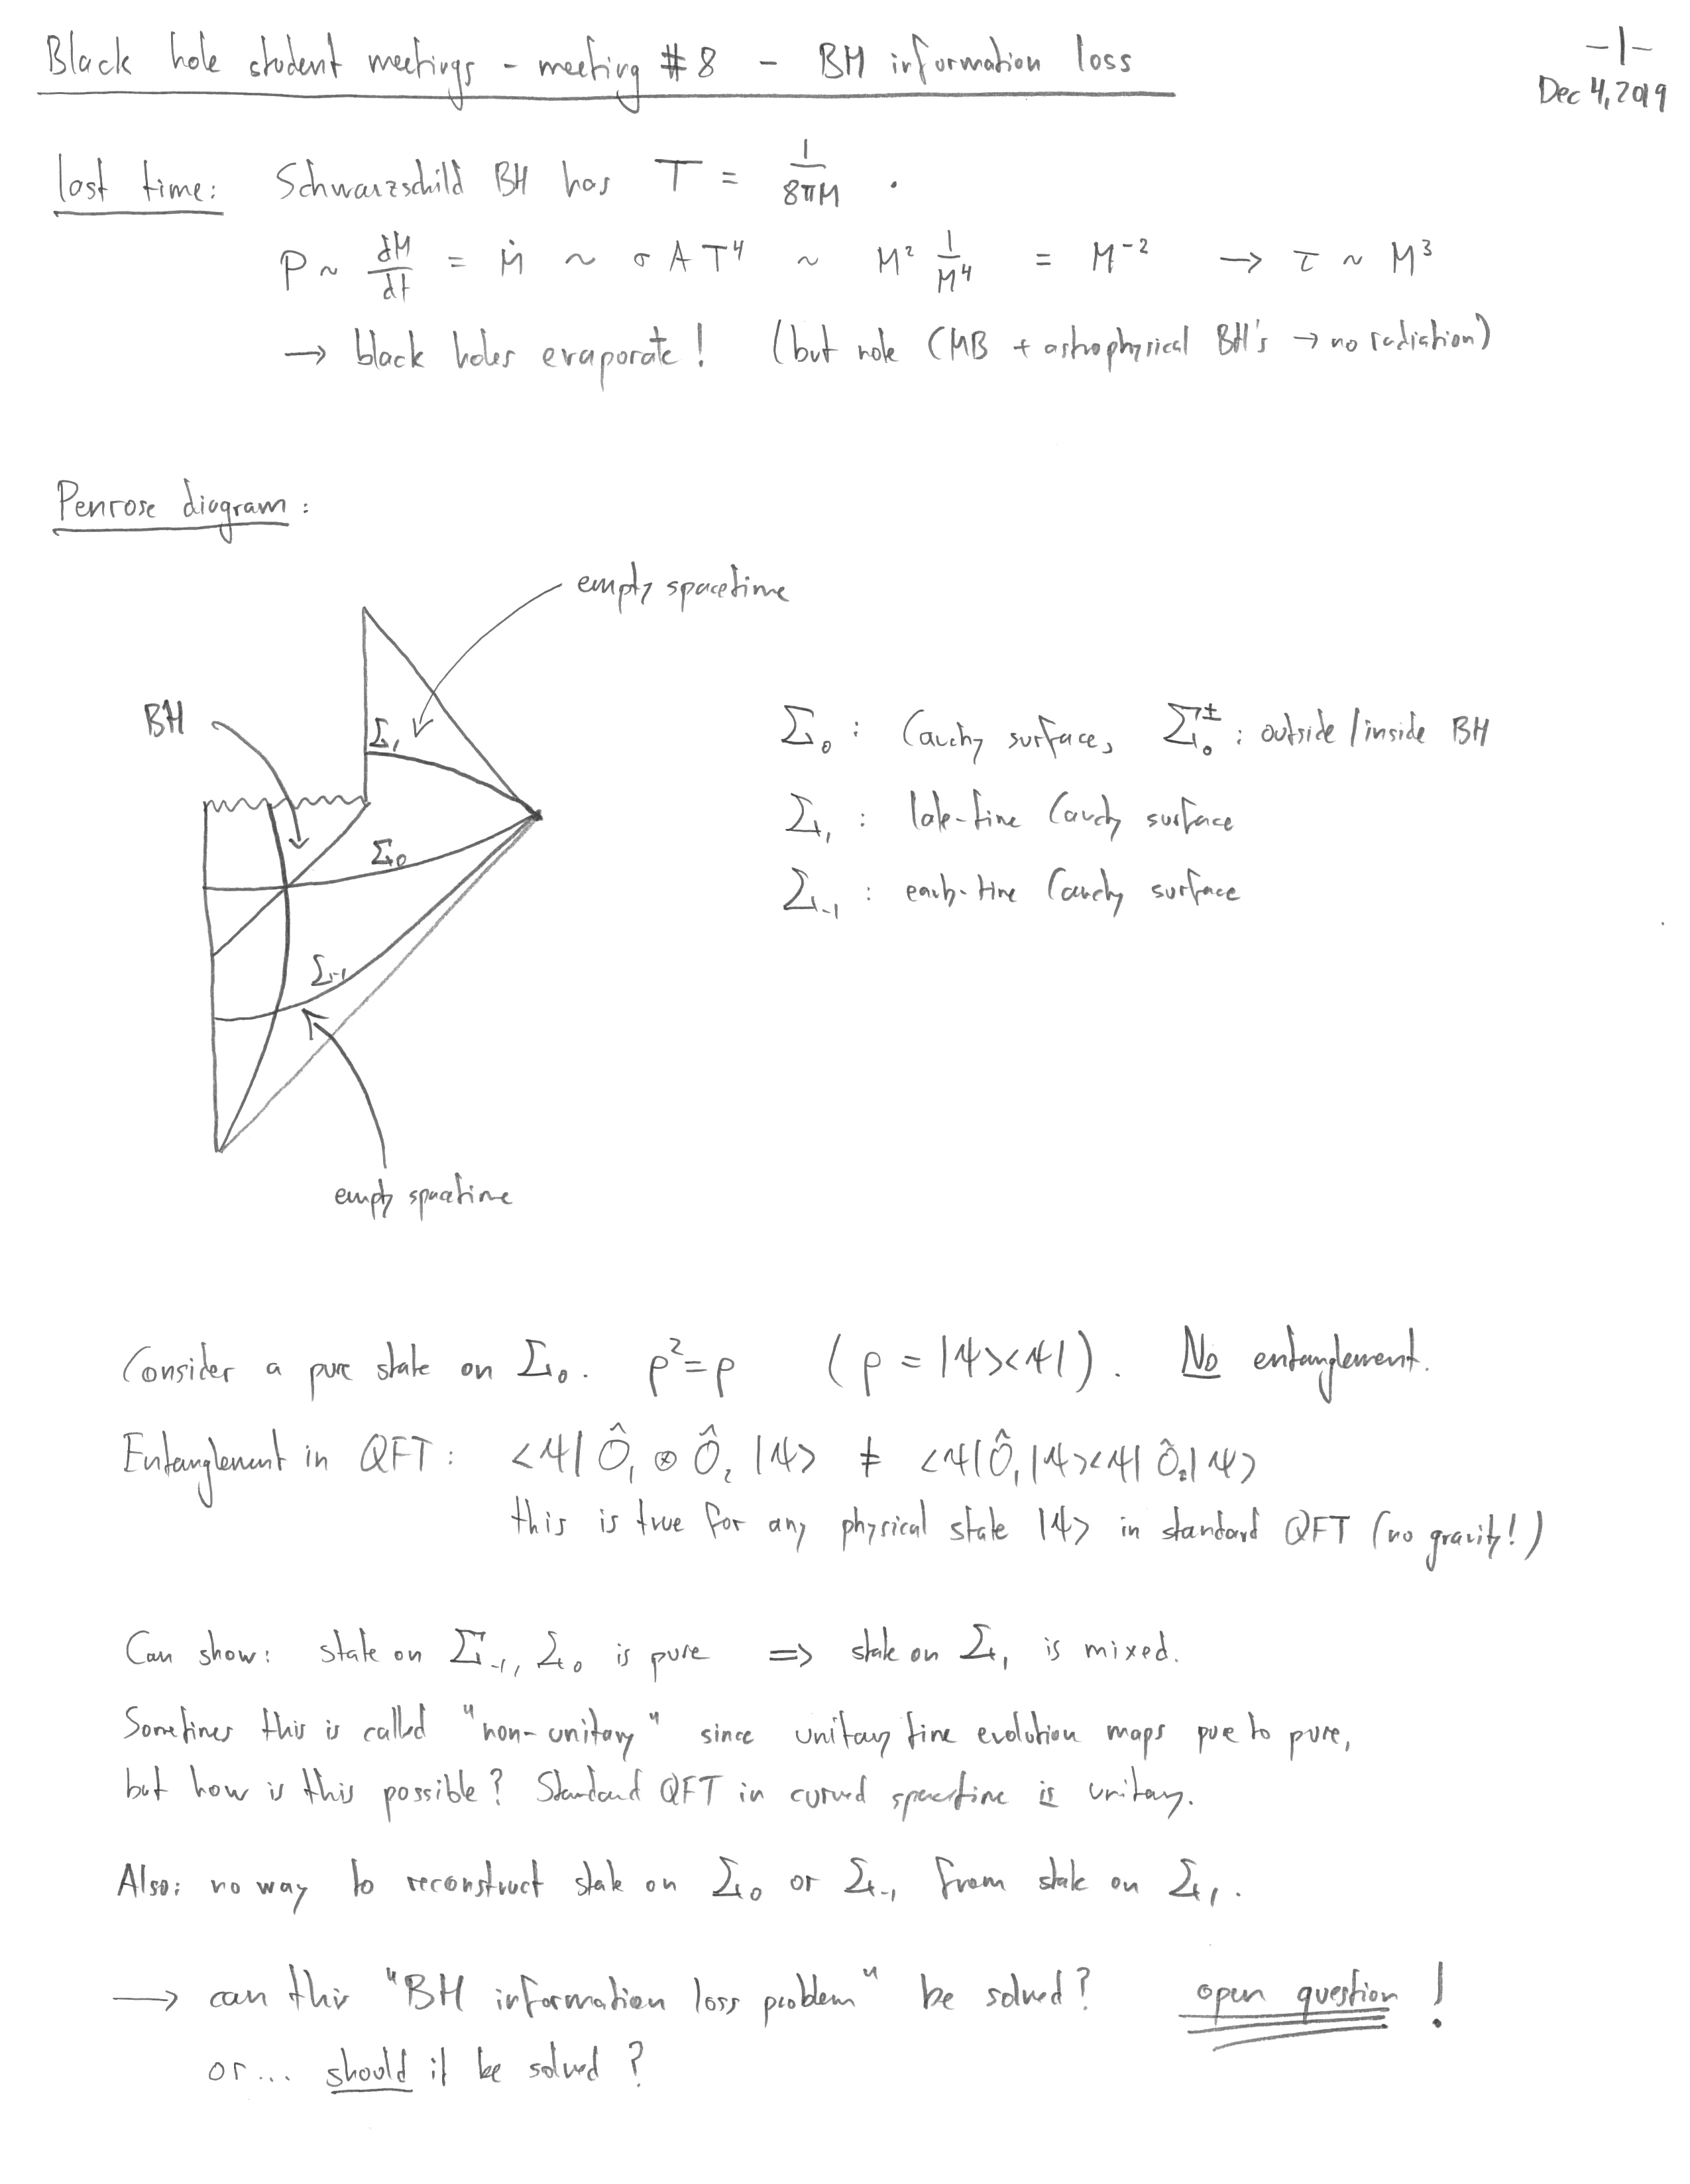 Black hole student meetings - meeting #8 - BH information loss
-1-
Dec 4, 2019
last time: Schwarzschild BH has T = 1/(8πM) .
P ~ dM/dt = Ṁ ~ σ A T⁴ ~ M² 1/M⁴ = M⁻² → τ ~ M³
→ black holes evaporate! (but note CMB + astrophysical BH's → no radiation)
Penrose diagram:
empty spacetime
BH
Σ₁
Σ₀
Σ₋₁
empty spacetime
Σ₀ : Cauchy surface, Σ₀^± : outside/inside BH
Σ₁ : late-time Cauchy surface
Σ₋₁ : early-time Cauchy surface
Consider a pure state on Σ₀. ρ²=ρ (ρ = |ψ><ψ|). No entanglement.
Entanglement in QFT: <ψ| Ô₁ ⊗ Ô₂ |ψ> ≠ <ψ|Ô₁|ψ><ψ|Ô₂|ψ>
this is true for any physical state |ψ> in standard QFT (no gravity!)
Can show: state on Σ₋₁, Σ₀ is pure => state on Σ₁ is mixed.
Sometimes this is called "non-unitary" since unitary time evolution maps pure to pure,
but how is this possible? Standard QFT in curved spacetime is unitary.
Also: no way to reconstruct state on Σ₀ or Σ₋₁ from state on Σ₁.
→ can this "BH information loss problem" be solved? open question!
or... should it be solved?